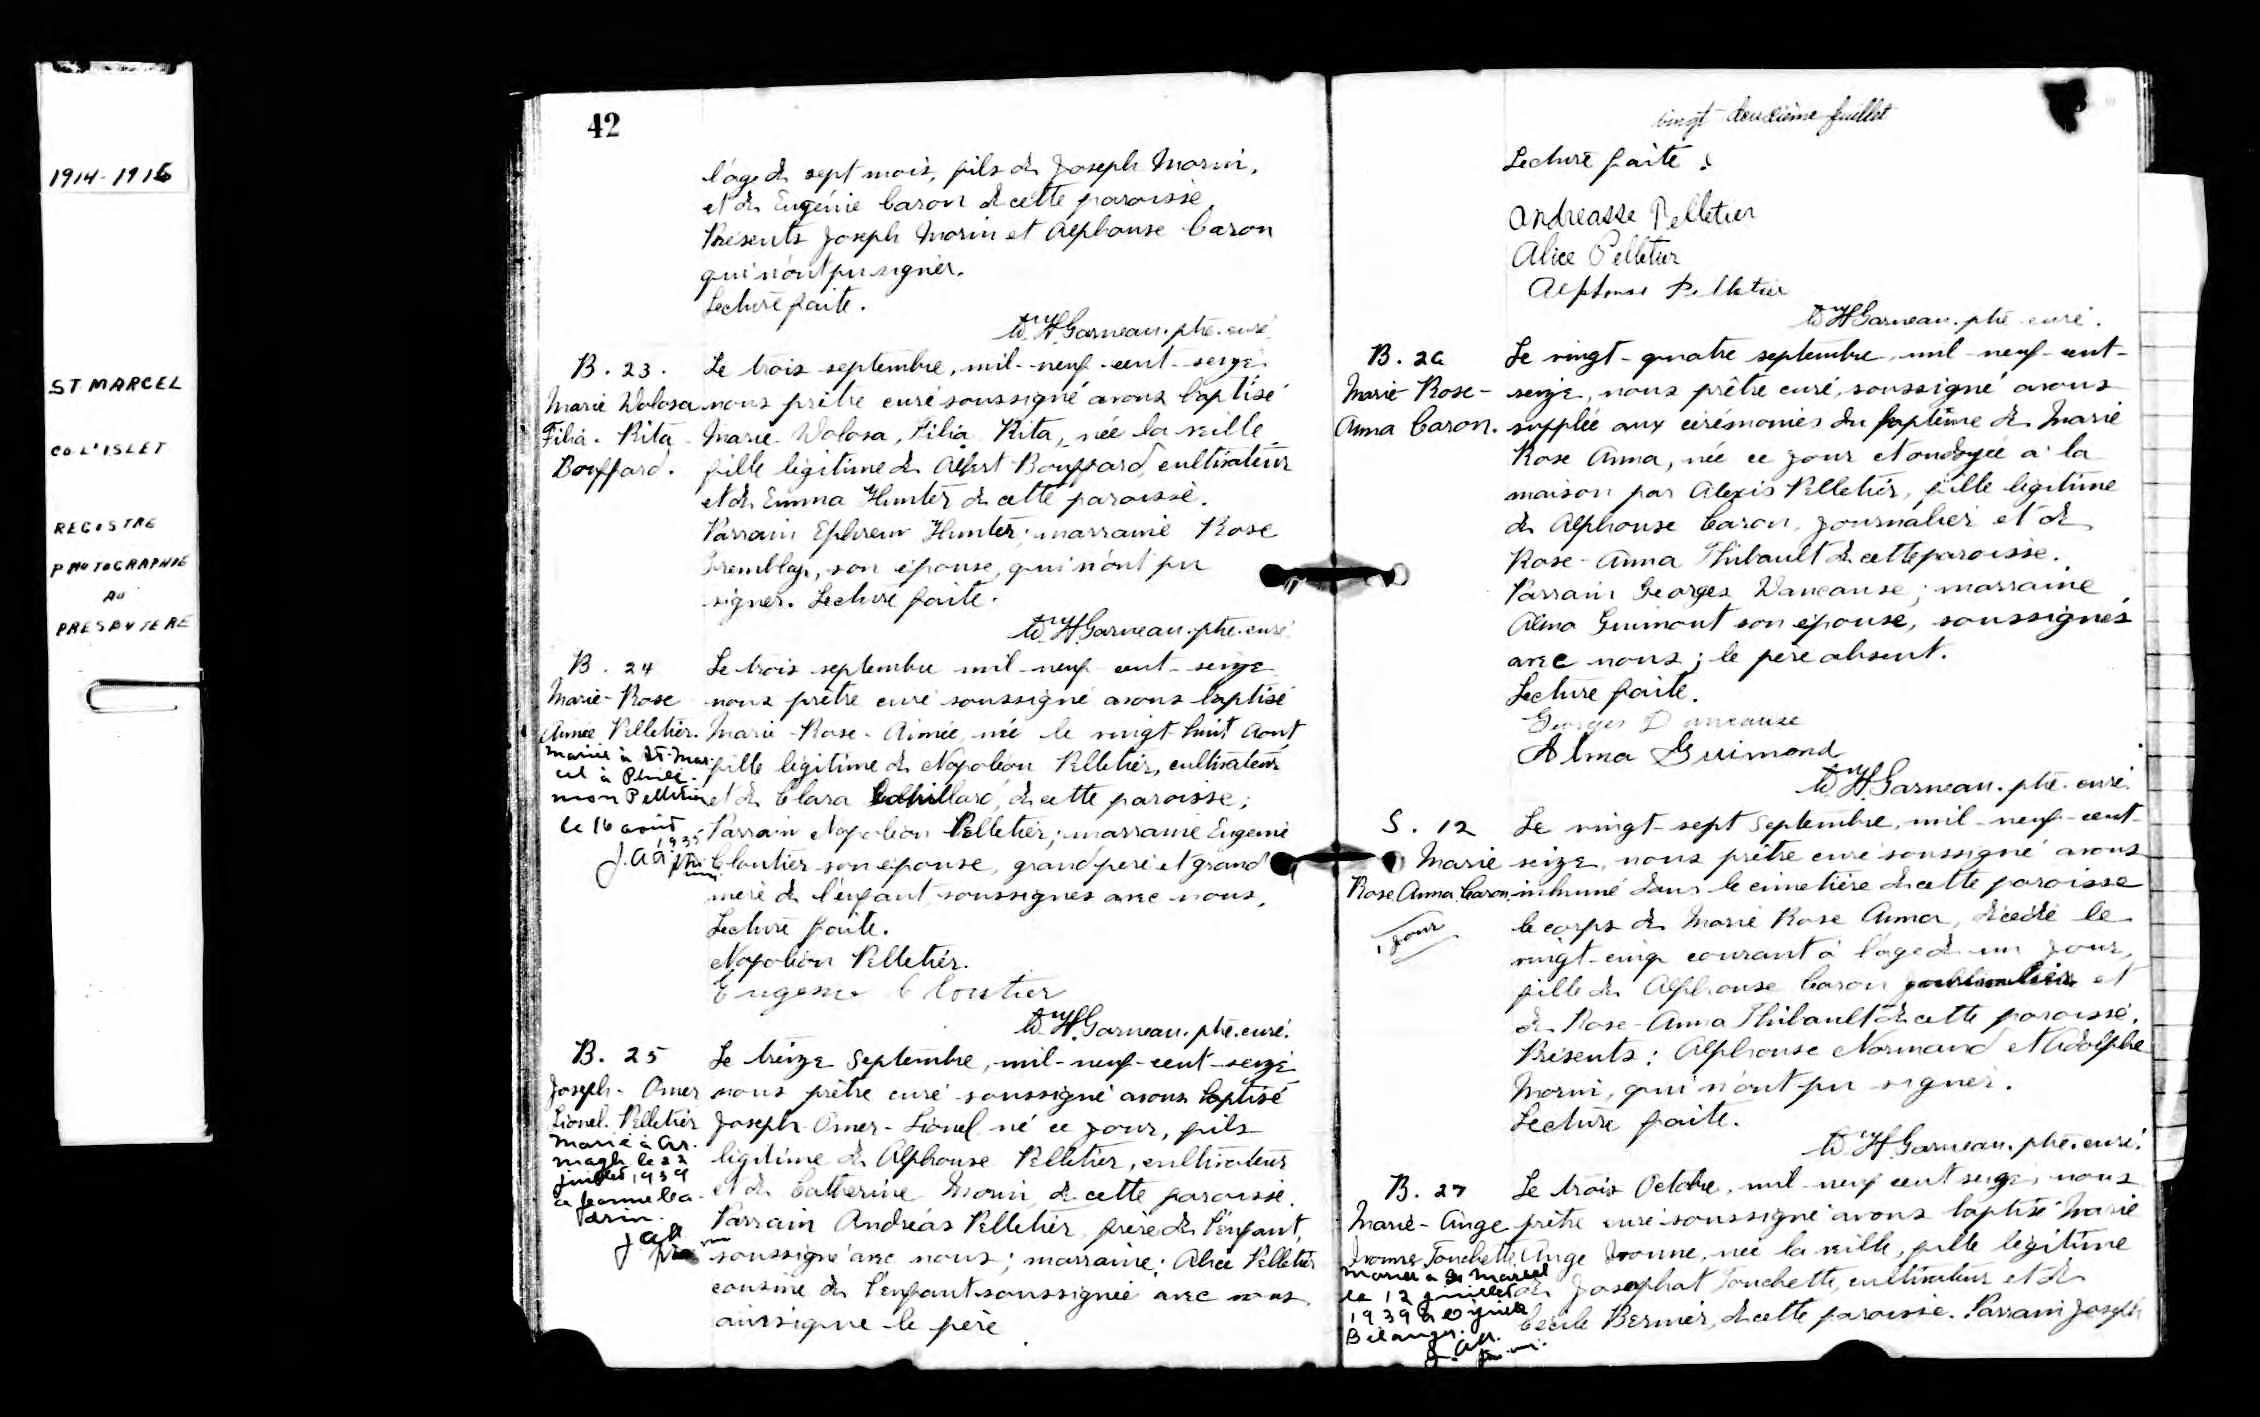 1914-1916
ST MARCEL
CO. L'ISLET
REGISTRE
PHOTOGRAPHIE
AU
PRESBYTERE
42
l'age de sept mois, fils de Joseph Morin,
et de Eugénie Caron de cette paroisse.
Présents Joseph Morin et Alphonse Caron
qui n'ont pu signer.
Lecture faite.
H Garneau. ptre. curé.
B. 23.
Marie Wolosa
Filia. Rita
Bouffard.
Le trois septembre, mil-neuf-cent-seize
nous prêtre curé soussigné avons baptisé
Marie Wolosa, Filia Rita, née la veille
fille légitime de Albert Bouffard, cultivateur
et de Emma Hunter de cette paroisse.
Parrain Ephrem Hunter; marraine Rose
Tremblay, son épouse, qui n'ont pu
signer. Lecture faite.
H Garneau. ptre. curé.
B. 24
Marie-Rose
Aimée Pelletier.
Mariée à St-Mar-
cel à Philé-
mon Pelletier
le 16 août
1935
J.A.A. ptre
Le trois septembre mil-neuf-cent-seize
nous prêtre curé soussigné avons baptisé
Marie-Rose-Aimée, née le vingt huit Aout
fille légitime de Napoléon Pelletier, cultivateur
et de Clara, de cette paroisse;
Parrain Napoléon Pelletier; marraine Eugenie
Cloutier son épouse, grand père et grand
mère de l'enfant, soussignés avec nous,
Lecture faite.
Napoléon Pelletier.
Eugenie Cloutier
H. Garneau. ptre. curé.
B. 25
Joseph-Omer
Lionel. Pelletier
Marié à Ar-
magh le 22
juillet 1939
à Jeanne
Le treize Septembre, mil-neuf-cent-seize
nous prêtre curé soussigné avons baptisé
Joseph-Omer-Lionel né ce jour, fils
légitime de Alphonse Pelletier, cultivateur
et de Catherine Morin de cette paroisse.
Parrain Andréas Pelletier, frère de l'enfant,
soussigné avec nous; marraine: Alice Pelletier
cousine de l'enfant soussignée avec nous
ainsi que le père
vingt deuxième feuillet
Lecture faite.
Andreasse Pelletier
Alice Pelletier
Alphonse Pelletier
H Garneau. ptre curé.
B. 26
Marie-Rose-
Anna Caron.
Le vingt-quatre septembre, mil-neuf-cent-
seize, nous prêtre curé, soussigné avons
supplée aux cérémonies du baptême de Marie
Rose Anna, née ce jour et ondoyée à la
maison par Alexis Pelletier, fille légitime
de Alphonse Caron, journalier et de
Rose-Anna Thibault de cette paroisse.
Parrain Georges Dancause; marraine
Alma Guimont son épouse, soussignés
avec nous; le père absent.
Lecture faite.
Georges Dancause
Alma Guimond
H. Garneau. ptre. curé.
S. 12
Marie
Rose Anna Caron,
1 jour
Le vingt-sept Septembre, mil-neuf-cent-
seize, nous prêtre curé soussigné avons
inhumé dans le cimetière de cette paroisse
le corps de Marie Rose Anna, décédé le
vingt-cinq courant à l'age de un jour,
fille de Alphonse Caron journalier et
de Rose-Anna Thibault de cette paroisse.
Présents: Alphonse Normand et Adolphe
Morin, qui n'ont pu signer.
Lecture faite.
H. Garneau. ptre. curé.
B. 27
Marie-Ange
Ivonne Touchette
Mariée à St Marcel
le 12 juillet
1939 à
Bélanger.
Le trois Octobre, mil-neuf cent seize, nous
prêtre curé soussigné avons baptisé Marie
Ange Ivonne, née la veille, fille légitime
de Josephat Touchette, cultivateur et de
Cécile Bernier, de cette paroisse. Parrain Joseph